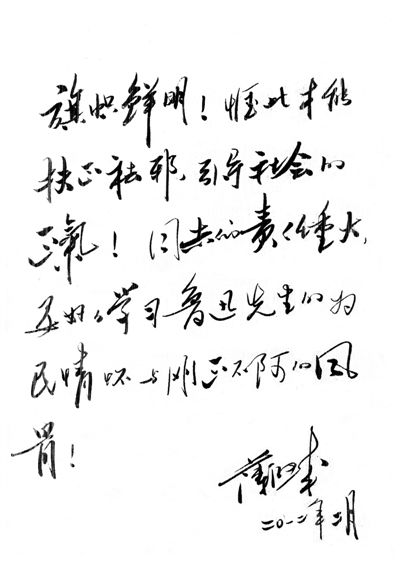 旗帜鲜明！惟此才能
扶正祛邪，引导社会的
正气！同志的责任重大，
要好好学习鲁迅先生的为
民情怀与刚正不阿的风
骨！
二〇一二年二月